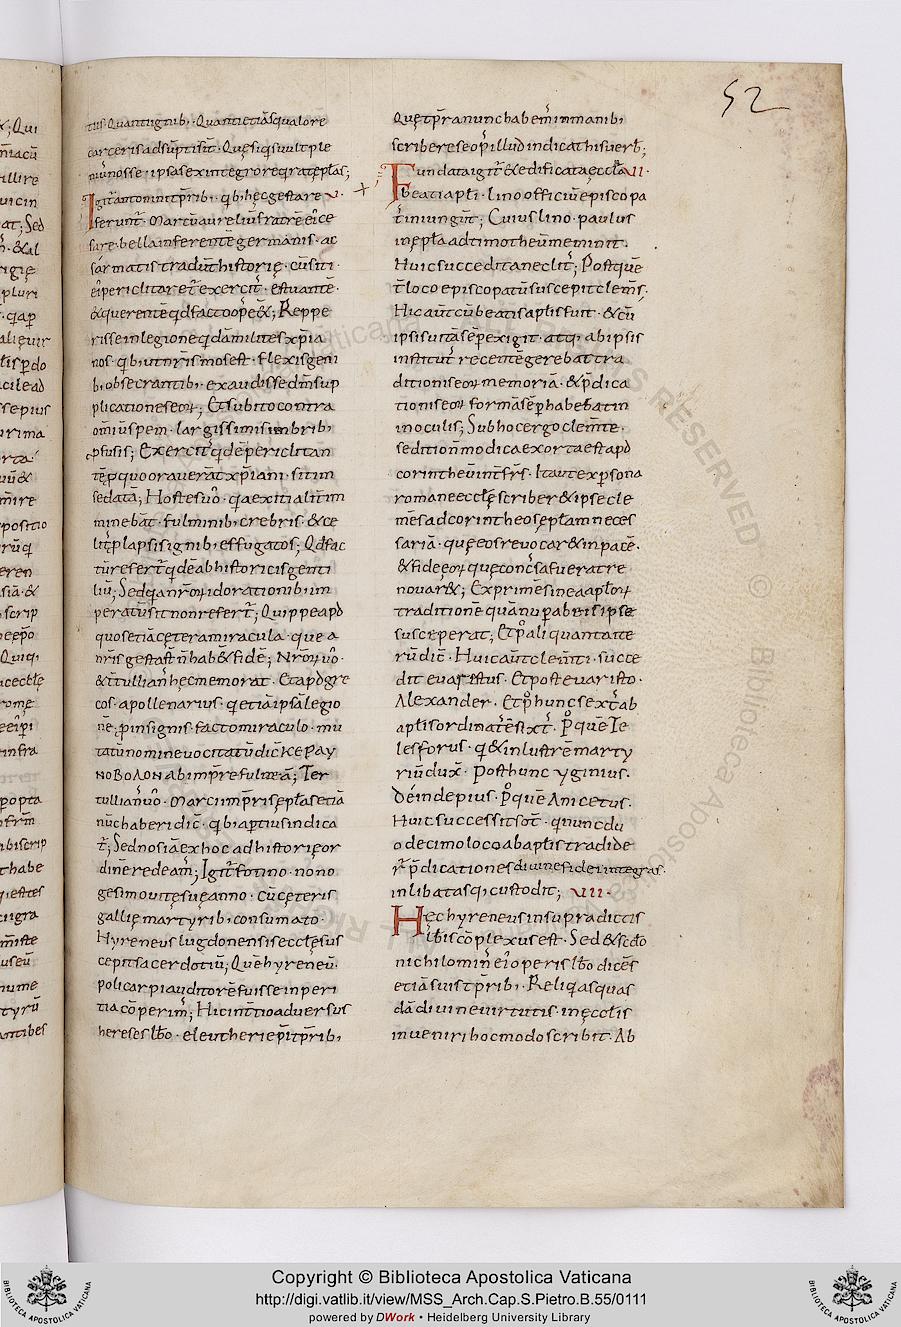 52
tus. Quantis ignib; Quanti etiã squalore
carceris adsũptisit. Que siq̃s uult ple
nius nosse. ipsas ex integro req̃rat ep̃las;
Igit̃ antonini tp̃rib; q̃b; hec gesta re V.
serunt̃. Marcũ aureliũ fratrẽ ei ce
sarẽ. bella inferentẽ germanis. ac
sarmatis tradunt̃ historie. cũ siti
ei periclitaret̃ exercit̃. estuantẽ.
& querentẽ qd facto op̃ e&; Reppe
risse in legione q̃dã milites xp̃ia
nos. q̃b; ut nr̃is mos est. flexis geni
b; obsecrantib; exaudisse dm̃ sup
plicationes eoꝝ; Et subito contra
om̃iũ spem. largissimis imbrib;
p̃fusis; Exercit̃ q̃dẽ periclitan
tẽ p quo orauerat̃ xp̃iani. sitim
sedatã; Hostes uo. q̃a exitiali ter̃im
minebat̃. fulminib; crebris. & ce
lit̃ plapsis ignib; effugatos; Qd fac
tũ refert̃ q̃dẽ ab historicis genti
liũ; Sed q̃a nr̃oꝝ id orationib; im
peratũ sit non refert̃; Quippe apd
quos etiã cetera miracula. que a
nr̃is gesta st̃ ñ habent̃ fidẽ; Nr̃oꝝ uo.
& tertullian̄ hec memorat. Et apd gre
cos. apollenarius. q̃ etiã ipsã legio
nẽ. p insignis facto miraculo. mu
tatũ nomine uocitatũ dic̃ ΚΕΡΑΥ
ΝΟΒΟΛΟΝ ab imp̃re fulmeã; Ter
tullian̄ uo. Marci imp̃ris ep̃las etiã
nũc haberi dic̃. q̃b; aptius indica
t̃; Sed nos iã ex hoc ad historie or
dinẽ redeam̃; Igit̃ fotino. nono
gesimo uite sue anno. cũ ceteris
gallie martyrib; consumato.
Hyreneus lugdonensis ecclẽ sus
cepit sacerdotiũ; Quẽ hyreneũ.
policarpi auditorẽ fuisse in peri
tia cõperim̃; Hic int̃tio aduersus
hereses lib̃o. eleutherie p̃it tp̃rib;
Que tp̃ra nunc habem̃ in manib;
scribere se op̃ illud indicat his uerb̃;
Fundata igit̃ & edificata eccl̃a VII.
beati apl̃i. lino officiũ episcopa
t̃ iniungunt̃; Cuius lino. paulus
in ep̃la ad timotheũ meminit.
Huic succedit aneclit̃; Post quẽ
t̃ loco episcopatũ suscepit clem̃s.
Hic aut̃ cũ beatis apl̃is fuit. & cũ
ipsis uitã sẽp exigit. atq; ab ipsis
institut̃ recentẽ gerebat tra
ditionis eoꝝ memoriã. & p̃dica
tionis eoꝝ formã sẽp habebat in
in oculis; Sub hoc ergo clem̃te.
seditio ñ modica exorta est apd
corintheũ int̃ fr̃s. Ita ut ex p̃sona
romane ecclẽ scriber& ipse cle
m̃s ad corintheos ep̃lam neces
sariã. que eos reuocar& in pacẽ.
& fidẽ eoꝝ que conc̃sa fuerat re
nouar&; Exprimẽs in ea apl̃oꝝ
traditionẽ quã nup ab eis ipse
susceperat; Et p̃ aliquanta ite
rũ dic̃. Huic aut̃ clem̃ti. succe
dit euaristus. Et post euaristo.
Alexander. Et p̃ hunc sext̃ ab
apl̃is ordinat̃ est xt̃. P̃ quẽ Te
lesforus. q̃ & inlustrẽ marty
riũ duxit̃. Post hunc yginius.
Dẽinde pius. P̃ quẽ Anicetus.
Huic successit sot̃. q̃ nunc du
odecimo loco ab apl̃is tradide
r̃t p̃dicationes diuine fidei integras.
inlibatasq; custodit; VIII.
Hec hyreneus in supradictis
lib̃is cõplexus est. Sed & sc̃do
nichilomin̄ ei operis lib̃o dicẽs
etiã suis tp̃rib; Reliq̃as quas
dã diuine uirtutis. in eccl̃is
inueniri hoc modo scribit. Ab
Copyright © Biblioteca Apostolica Vaticana
http://digi.vatlib.it/view/MSS_Arch.Cap.S.Pietro.B.55/0111
powered by DWork • Heidelberg University Library